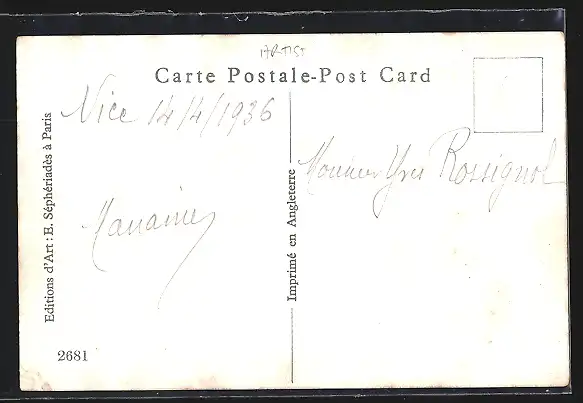 ARTIST
Carte Postale-Post Card
Nice 14/4/1936
Monsieur Yves Rossignol
Editions d'Art: E. Séphériadès à Paris
Imprimé en Angleterre
2681